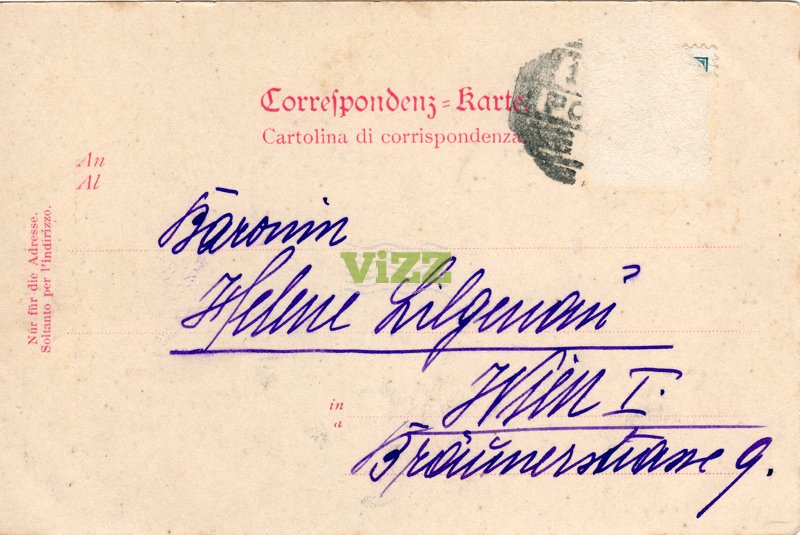 Correspondenz-Karte
Cartolina di corrispondenza
An
Al
Nur für die Adresse.
Soltanto per l'indirizzo.
Baronin
ViZZ
Helene Lilgenau
Wien I.
in
a
Bräunerstrasse 9.